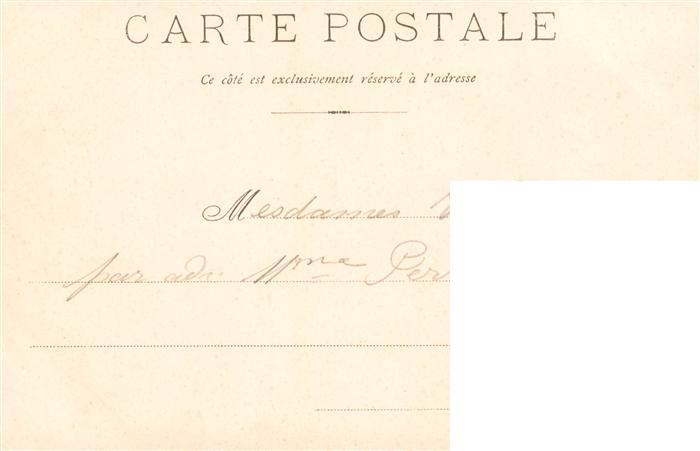 CARTE POSTALE
Ce côté est exclusivement réservé à l'adresse
Mesdames
par adr. Mme